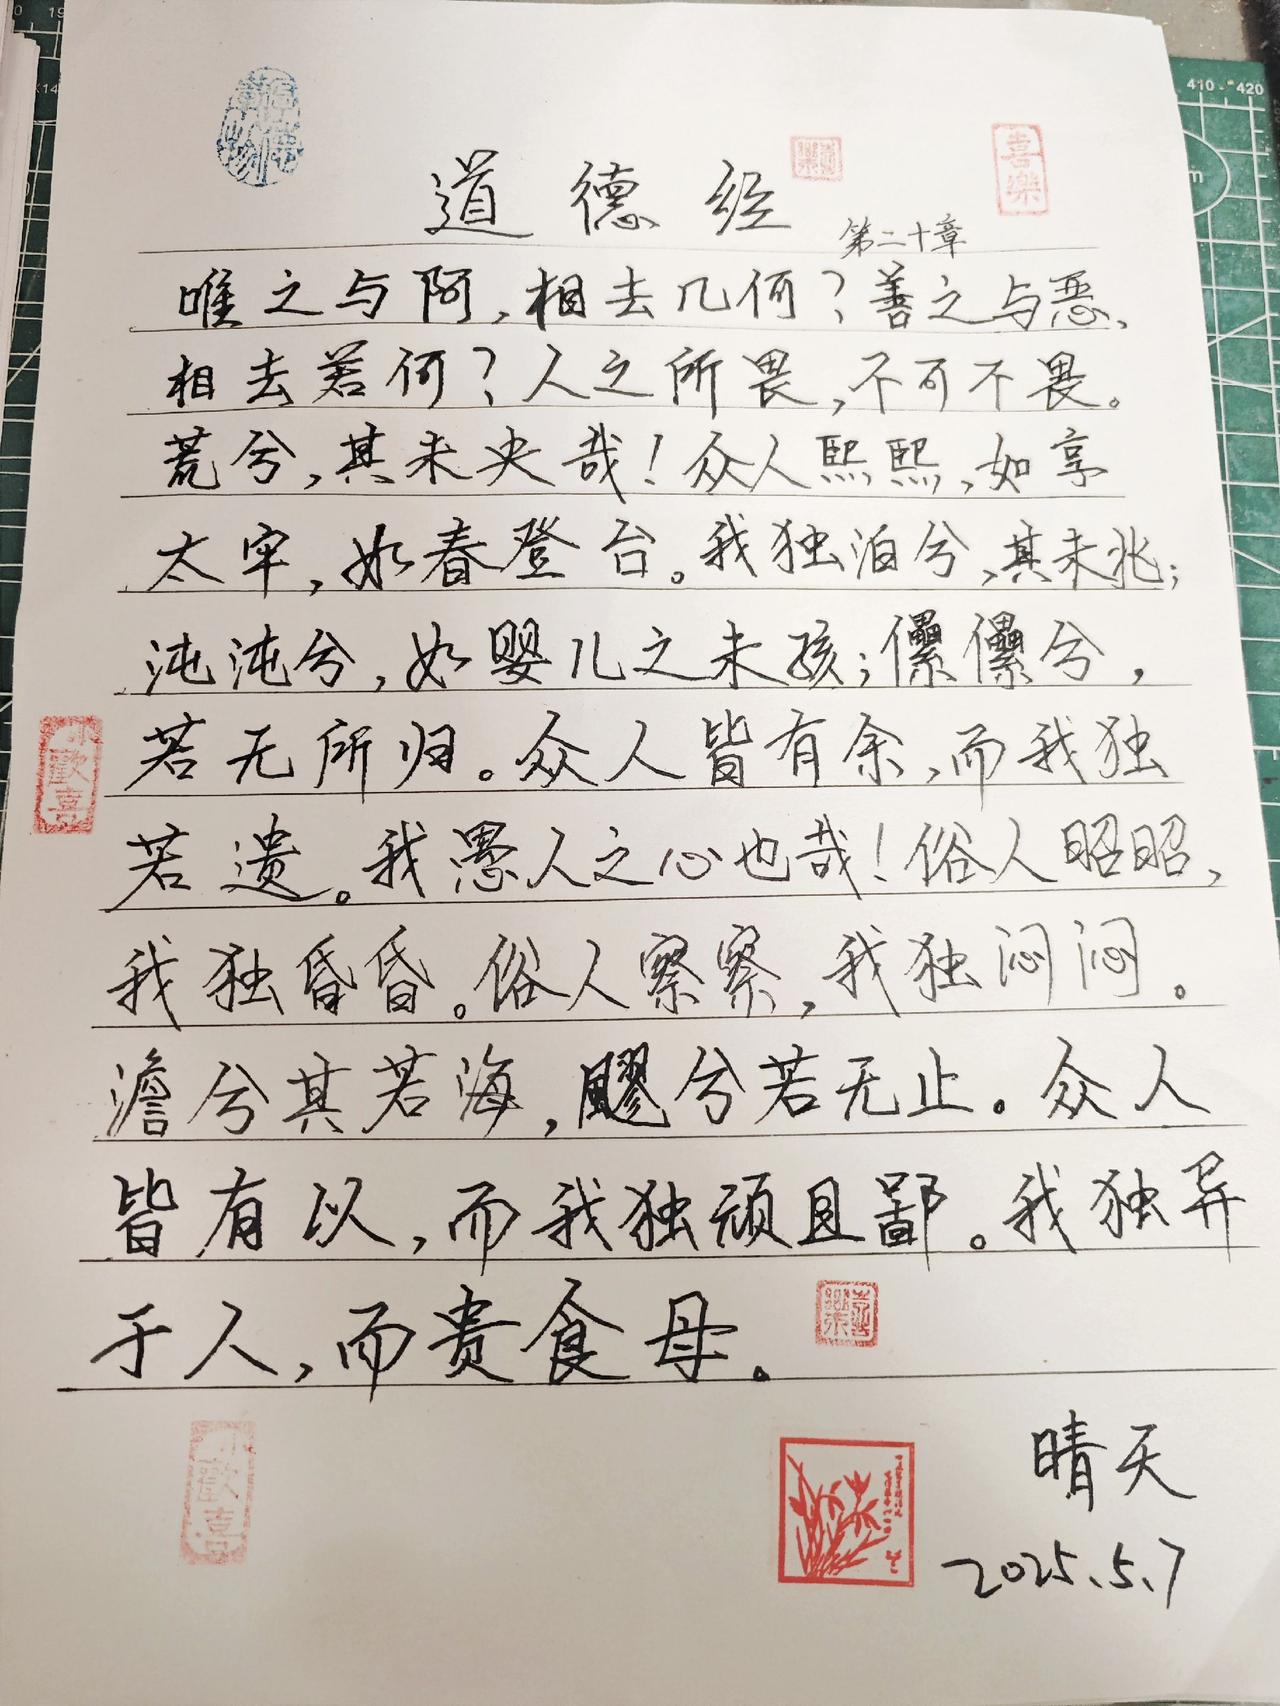 喜樂
喜樂
道德经
第二十章
唯之与阿，相去几何？善之与恶、
相去若何？人之所畏，不可不畏。
荒兮，其未央哉！众人熙熙，如享
太牢，如春登台。我独泊兮，其未兆；
沌沌兮，如婴儿之未孩；儽儽兮，
若无所归。众人皆有余，而我独
若遗。我愚人之心也哉！俗人昭昭，
我独昏昏。俗人察察，我独闷闷。
澹兮其若海，飂兮若无止。众人
皆有以，而我独顽且鄙。我独异
于人，而贵食母。
小歡喜
喜樂
小歡喜
晴天
2025.5.7
410
420